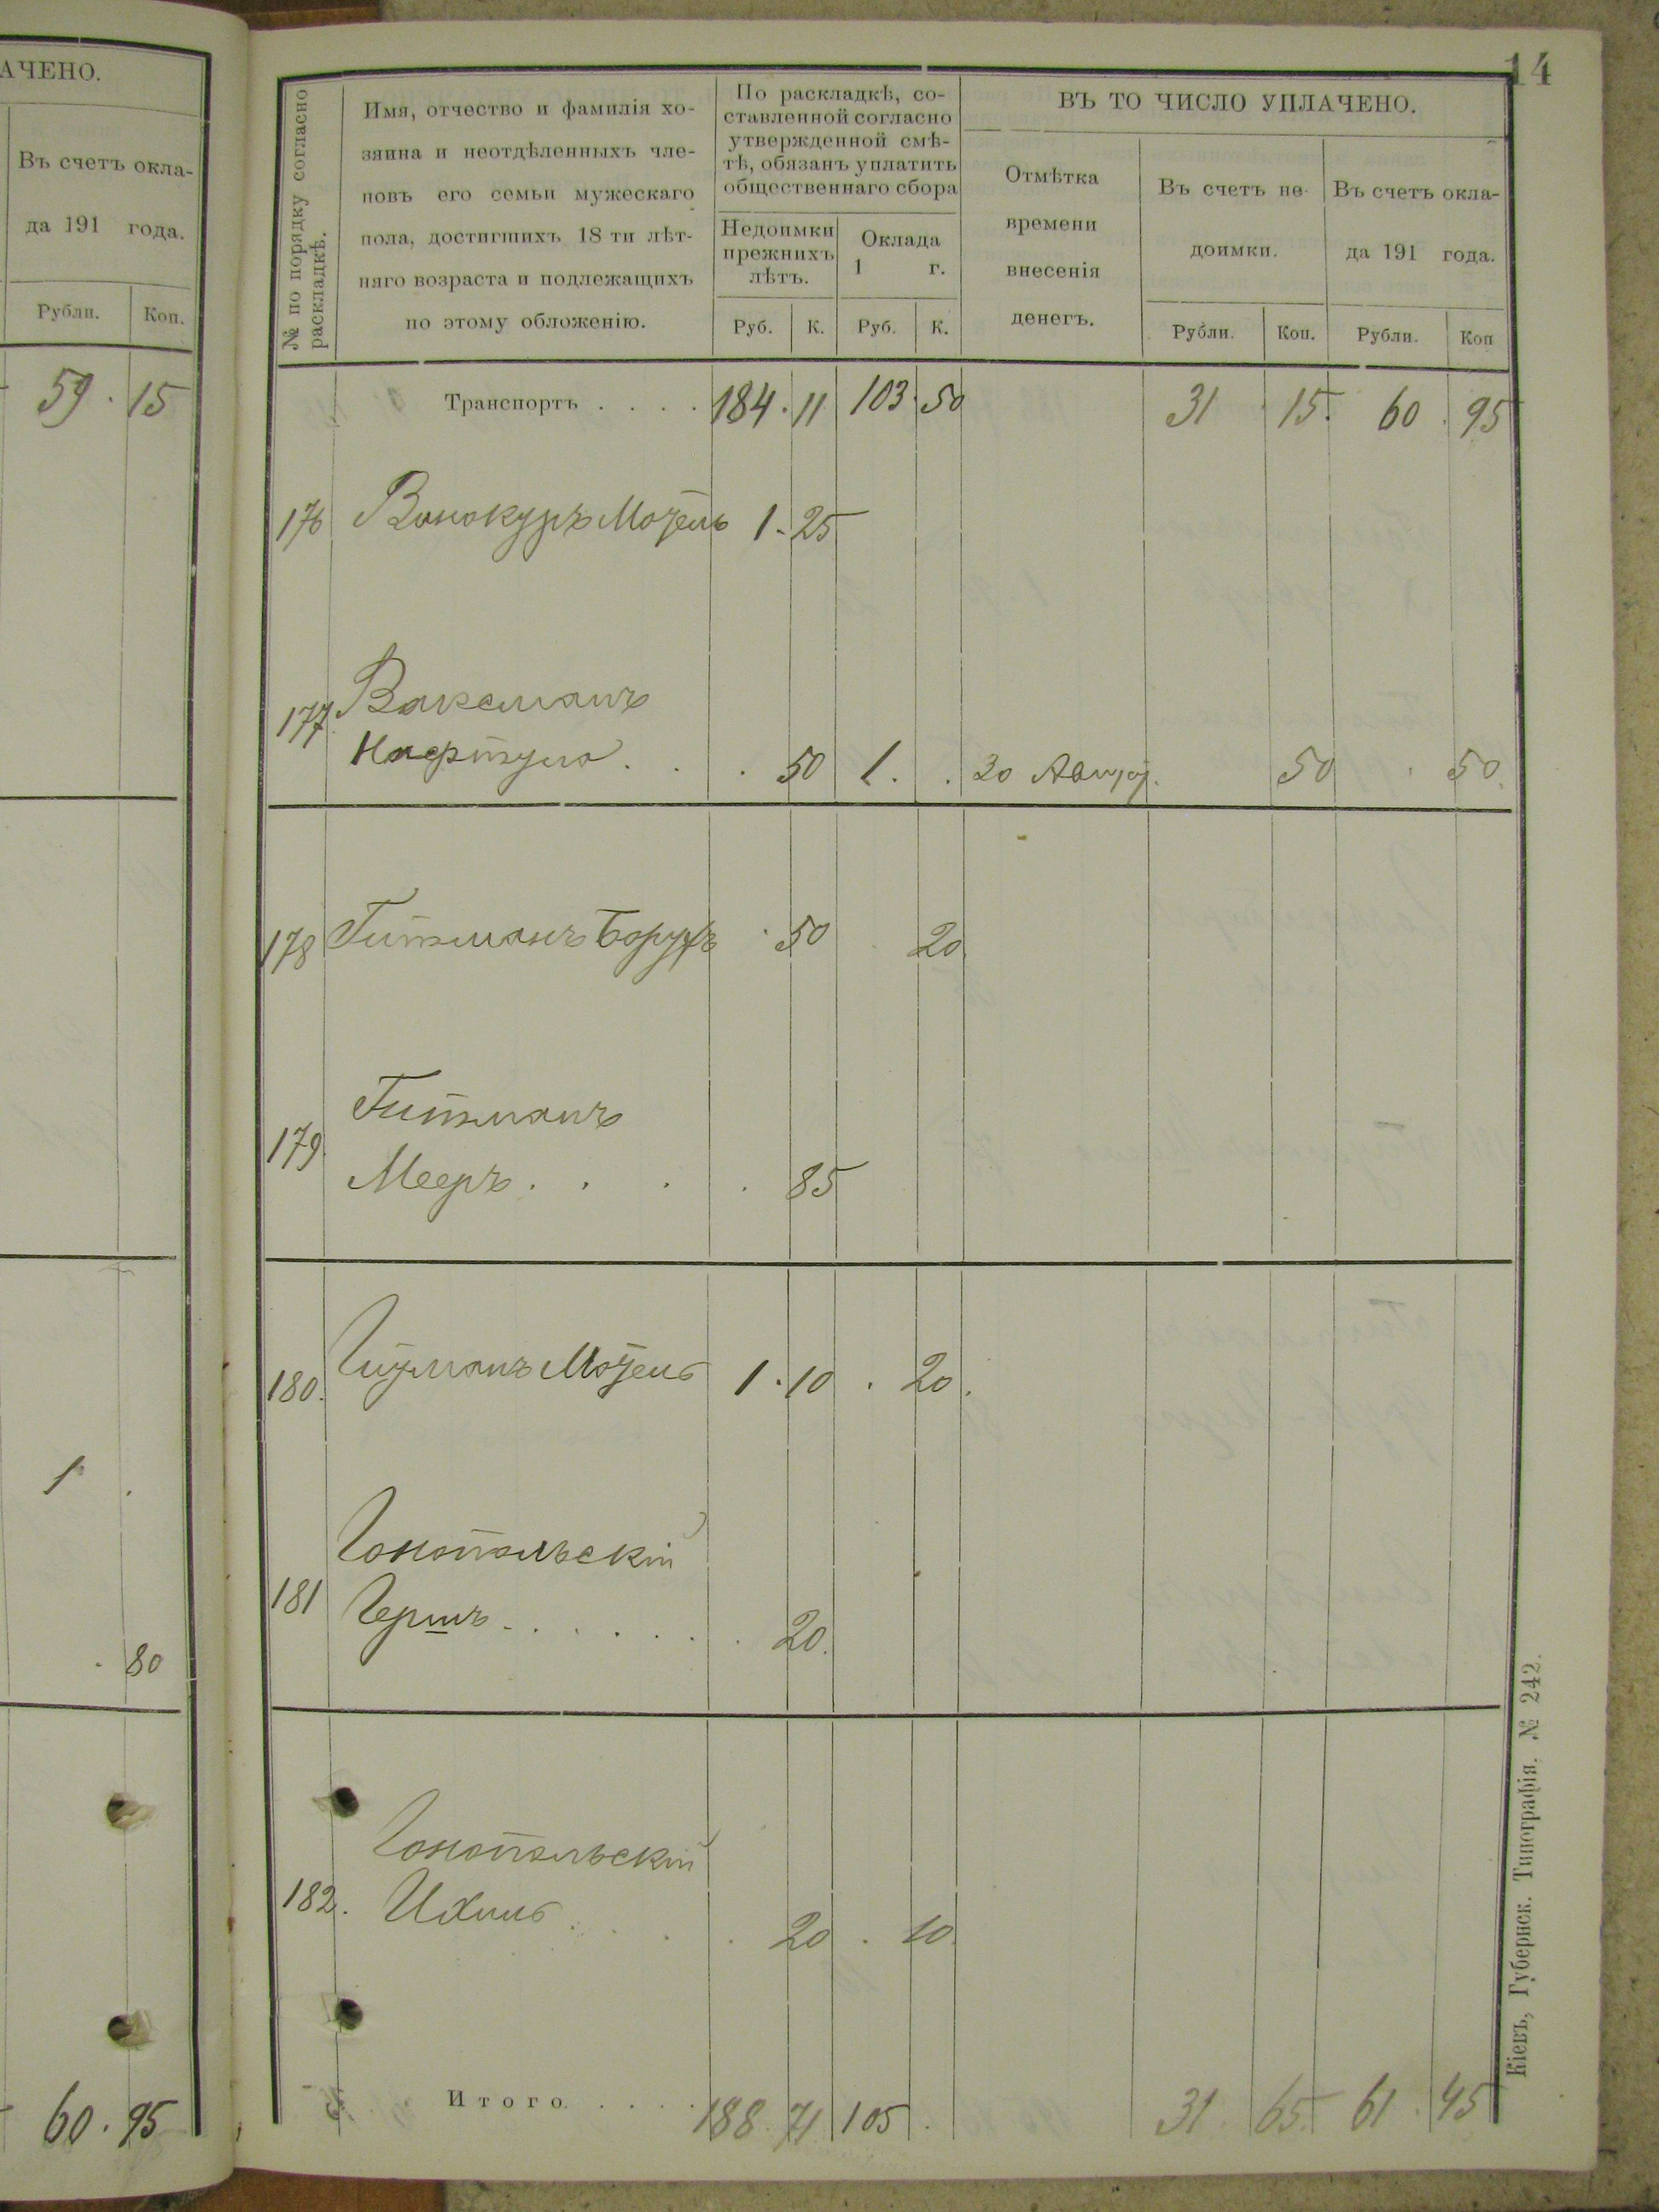 АЧЕНО.
Въ счетъ окла-
да 191 года.
Рубли. Коп.
59 . 15
1 .
. 80
60 . 95
14
№ по порядку согласно
раскладкѣ.
Имя, отчество и фамилія хо-
зяина и неотдѣленныхъ чле-
новъ его семьи мужескаго
пола, достигшихъ 18 ти лѣт-
няго возраста и подлежащихъ
по этому обложенію.
По раскладкѣ, со-
ставленной согласно
утвержденной смѣ-
тѣ, обязанъ уплатить
общественнаго сбора
Недоимки
прежнихъ
лѣтъ.
Оклада
1 г.
Руб. К. Руб. К.
ВЪ ТО ЧИСЛО УПЛАЧЕНО.
Отмѣтка
времени
внесенія
денегъ.
Въ счетъ не-
доимки.
Въ счетъ окла-
да 191 года.
Рубли. Коп. Рубли. Коп
Транспортъ . . . . 184 . 11 103 . 50 31 . 15 . 60 . 95
176 Винокуръ Мотель 1 - 25
177 Ваксманъ
Нафтула . . . 50 1 . . 30 Август. 50 . 50.
178 Гитманъ Борухъ . 50 . 20
179 Гитманъ
Мееръ . . . . 85
180. Гитманъ Мотель 1 . 10 . 20.
181 Гонопольскій
Гершъ . . . . . . . 20.
182. Гонопольскій
Ихиль . . . . 20 . 10
Итого. . . . . 188 . 71 105 . 31 . 65 . 61 . 45
Кіевъ, Губернск. Типографія. № 242.